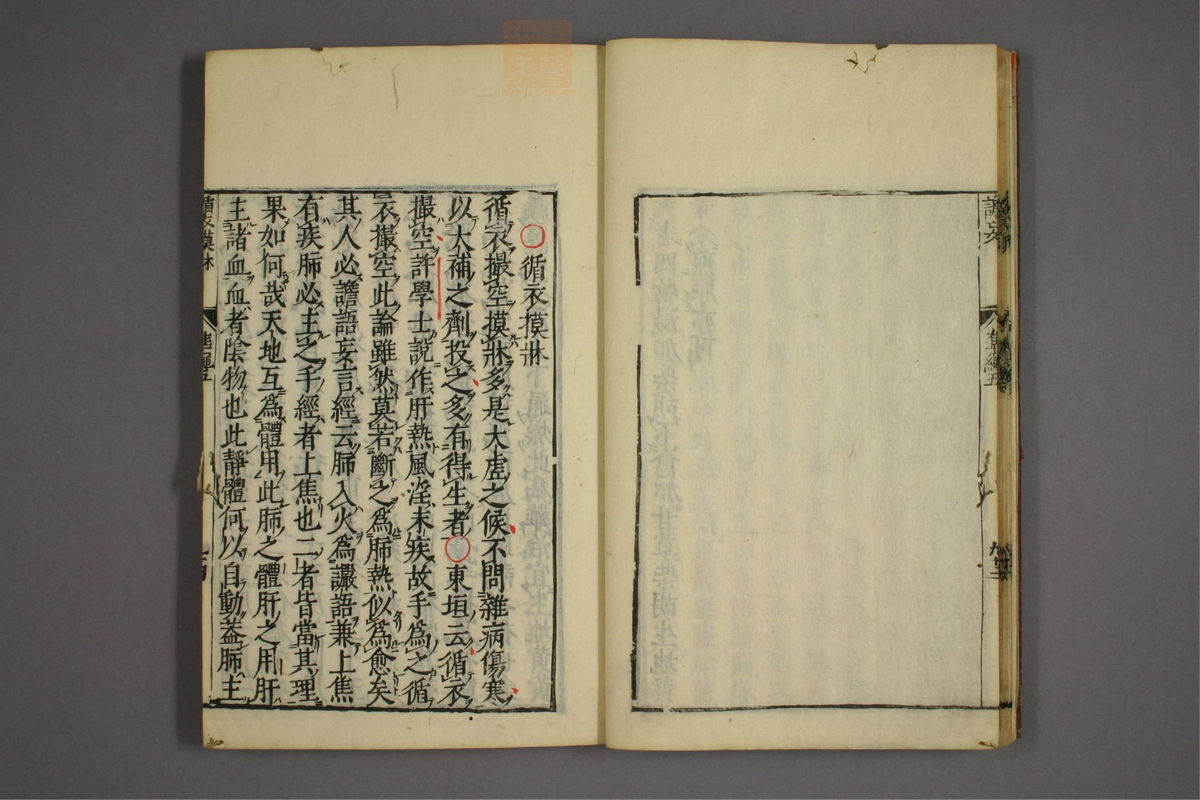 譫妄
準繩五
循衣摸牀
循衣撮空摸牀多是大虛之候不問雜病傷寒
以大補之劑投之多有得生者○東垣云循衣
撮空許學士說作肝熱風淫末疾故手爲之循
衣撮空此論雖然莫若斷之爲肺熱似爲愈矣
其人必譫語妄言經云肺入火爲讝語兼上焦
有疾肺必主之手經者上焦也二者皆當其理
果如何哉天地互爲體用此肺之體肝之用肝
主諸血血者陰物也此靜體何以自動蓋肺主
循衣摸牀
準繩五